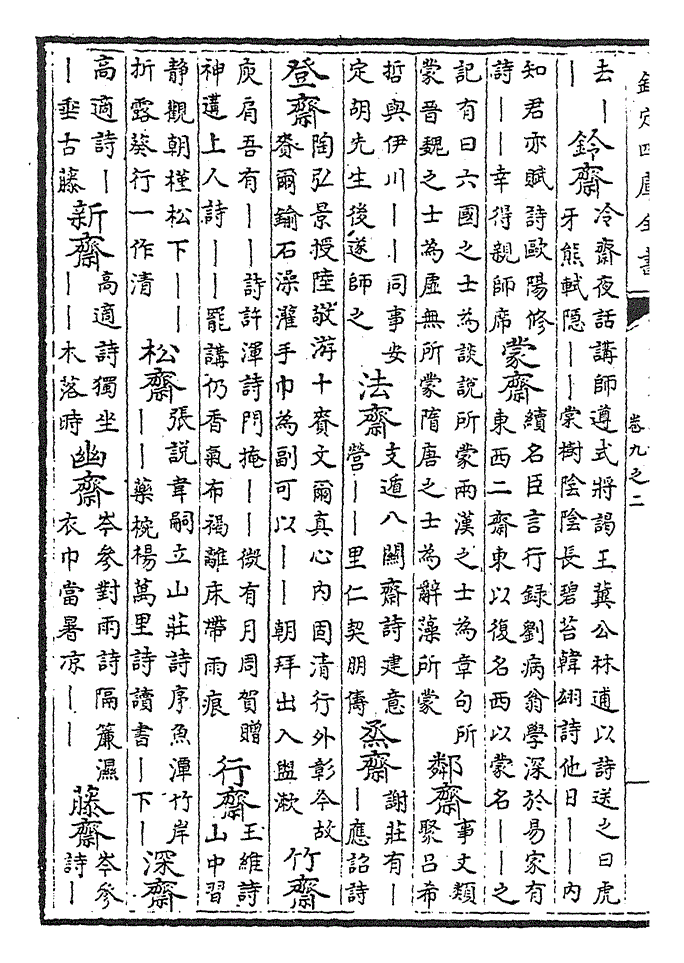 欽定四庫全書
卷九之二
去丨
丨
鈴齋
冷齋夜話講師遵式將謁王冀公林逋以詩送之曰虎
牙熊軾隱丨丨棠樹陰陰長碧苔韓翃詩他日丨丨内
知君亦賦詩歐陽修
詩丨丨幸得親師席
蒙齋
續名臣言行録劉病翁學深於易家有
東西二齋東以復名西以蒙名丨丨之
記有曰六國之士為談說所蒙兩漢之士為章句所
蒙晉魏之士為虚無所蒙隋唐之士為辭藻所蒙
鄰齋
事文類
聚吕希
哲與伊川丨丨同事安
定胡先生後遂師之
法齋
支遁八關齋詩建意
營丨丨里仁契朋儔
烝齋
謝莊有丨
丨應詔詩
登齋
陶弘景授陸敬游十賚文爾真心内固清行外彰今故
賚爾鍮石澡灌手巾為副可以丨丨朝拜出入盥漱
竹齋
庾肩吾有丨丨詩許渾詩門掩丨丨微有月周賀贈
神邁上人詩丨丨罷講仍香氣布褐離床帶雨痕
行齋
王維詩
山中習
静觀朝槿松下丨丨
折露葵行一作清
松齋
張說韋嗣立山莊詩序魚潭竹岸
丨丨藥椀楊萬里詩讀書丨下丨
深齋
高適詩丨
丨垂古藤
新齋
高適詩獨坐
丨丨木落時
幽齋
岑參對雨詩隔簾濕
衣巾當暑凉丨丨
藤齋
岑參
詩丨